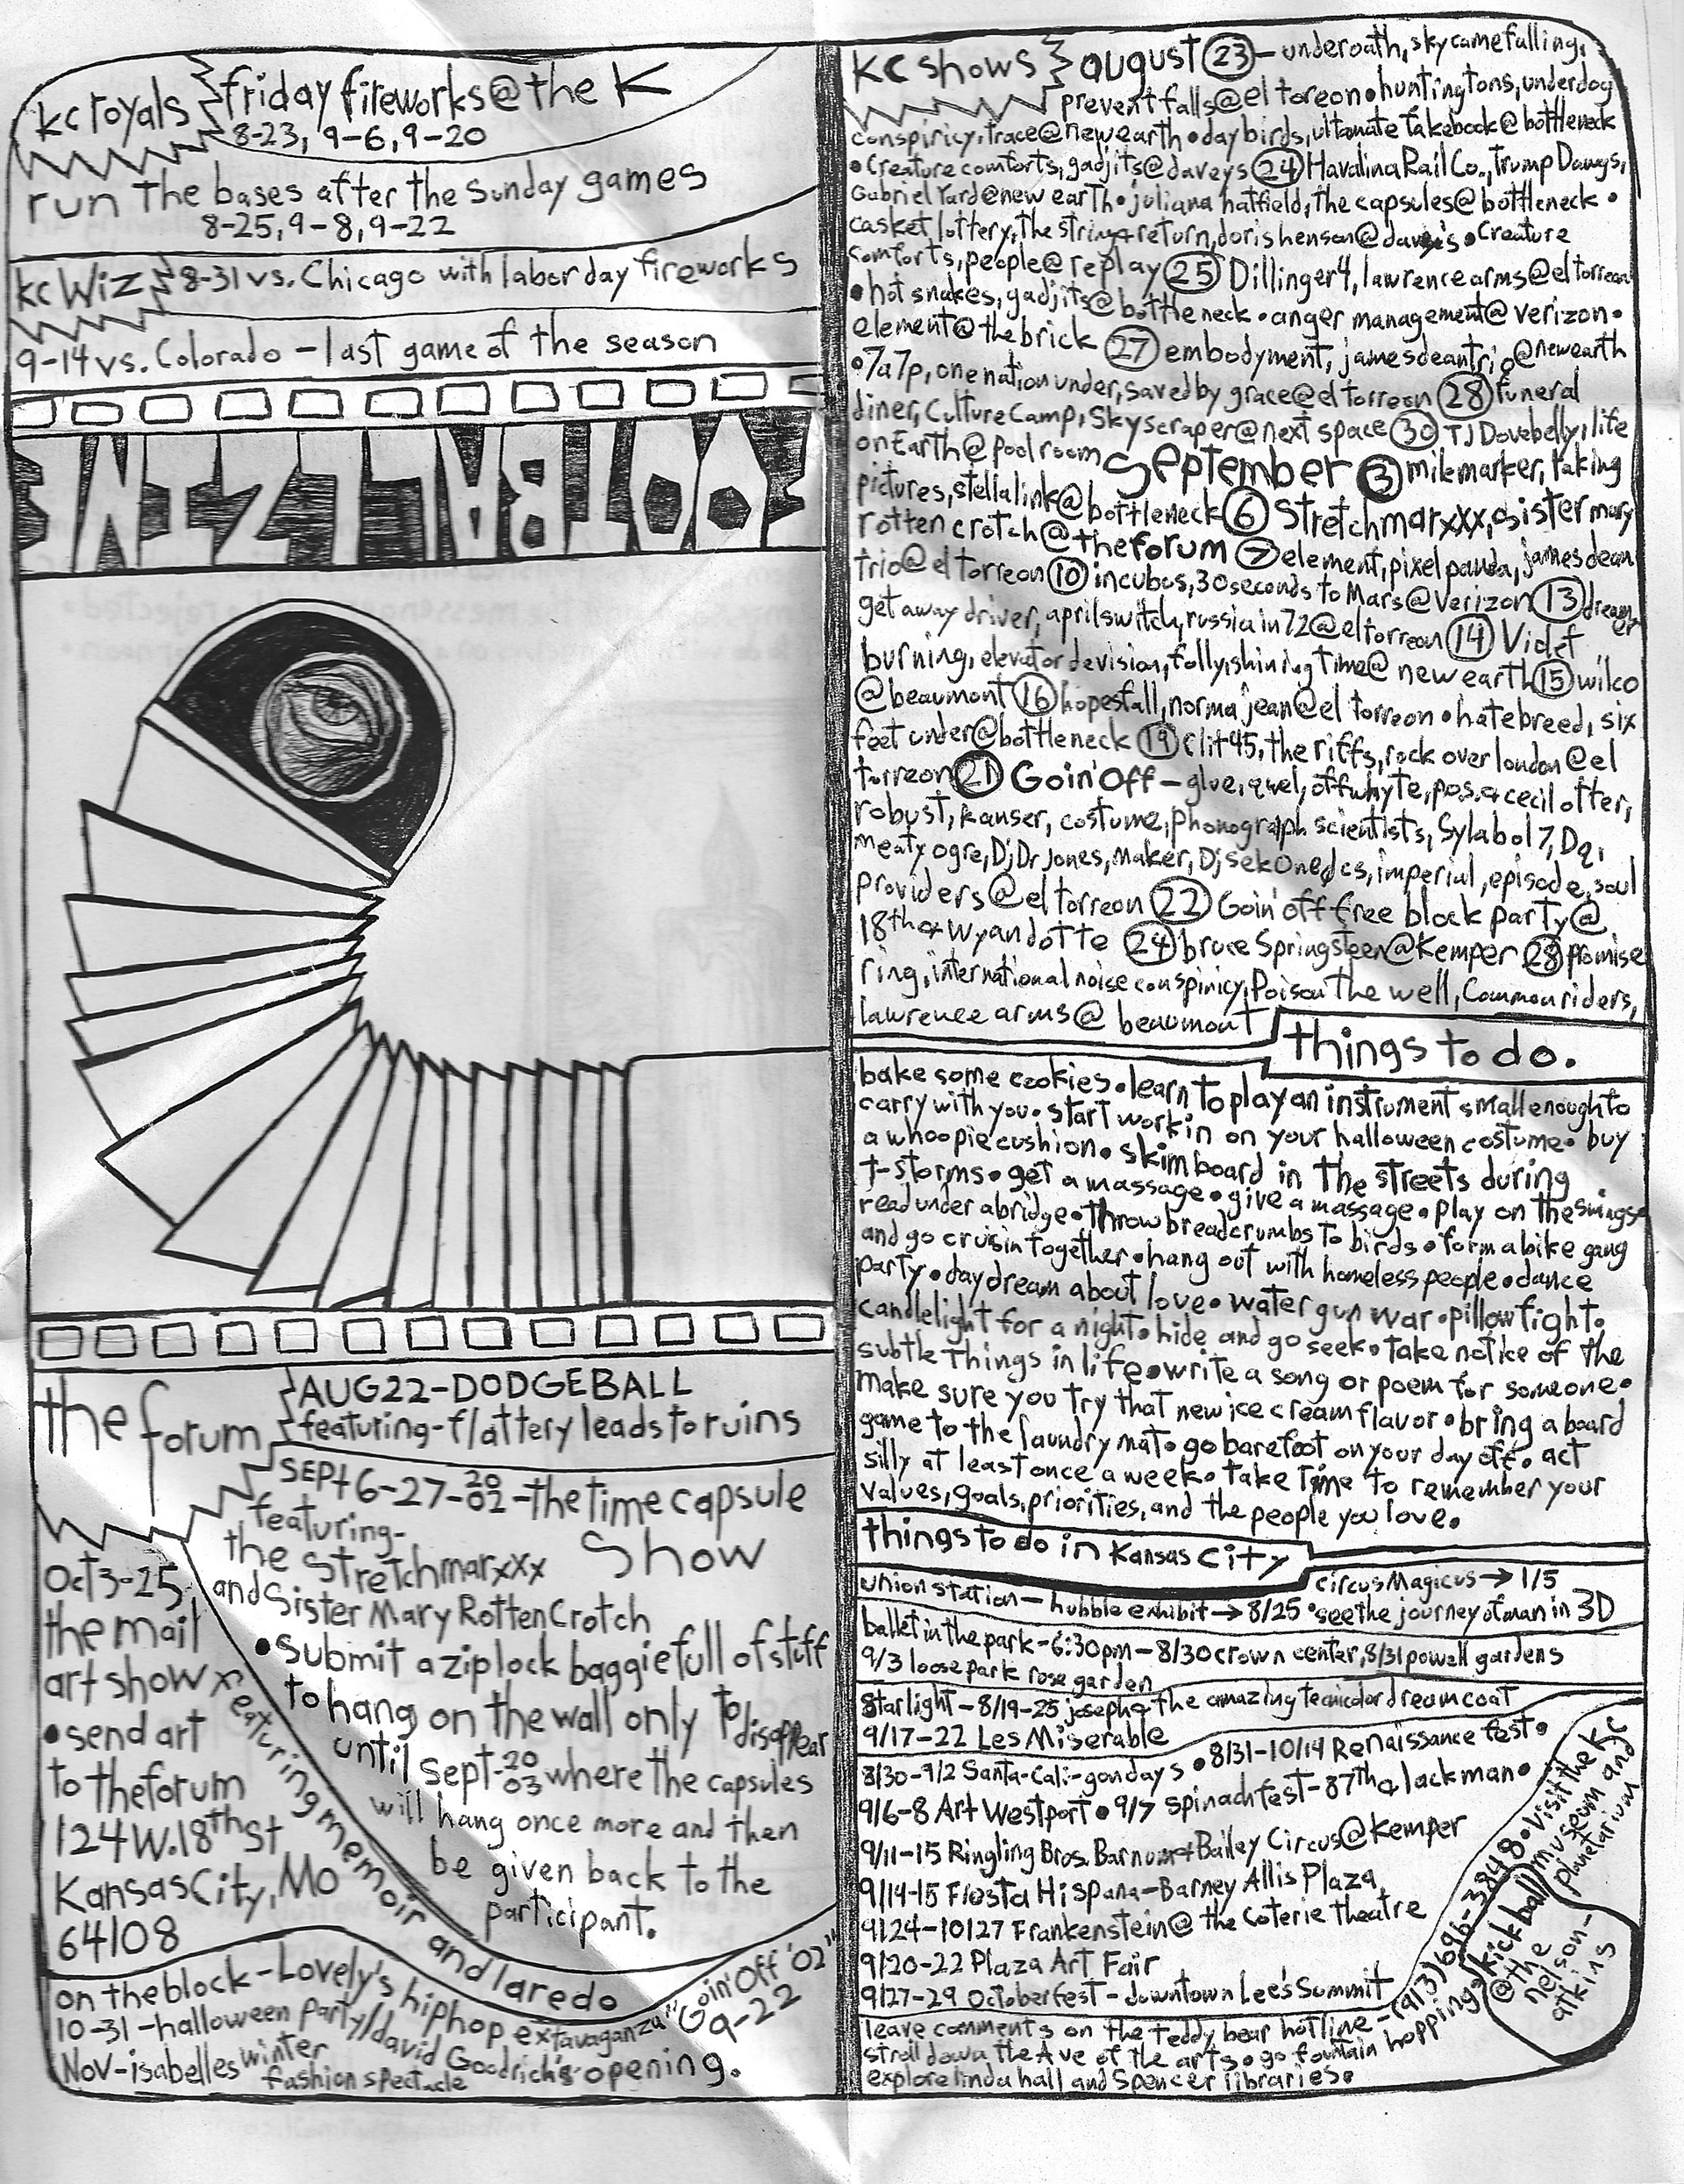 kc royals
friday fireworks @ the K
8-23, 9-6, 9-20
run the bases after the Sunday games
8-25, 9-8, 9-22
kc Wiz
8-31 vs. Chicago with labor day fireworks
9-14 vs. Colorado - last game of the season
the forum
AUG 22 - DODGEBALL
featuring - flattery leads to ruins
SEPt 6-27-2002 - the time capsule
Show
featuring-
the Stretchmarxxx
and Sister Mary Rotten Crotch
•submit a ziplock baggie full of stuff
to hang on the wall only to disappear
until Sept-2003 where the capsules
will hang once more and then
be given back to the
participant.
Oct 3-25
the mail
art show
•send art
to the forum
124 W. 18th St
Kansas City, Mo
64108
featuring memoir and laredo
on the block - Lovely's hiphop extavaganza "Goin' Off '02"
9-22
10-31 - halloween party/david Goodrich's opening.
Nov - isabelles winter
fashion spectacle
kc shows
august 23 - underoath, sky came falling,
prevent falls @ el toreon • huntingtons, underdog
conspiricy, trace @ new earth • day birds, ultamate fakebook @ bottleneck
• Creature comforts, gadjits @ daveys 24 Havalina Rail Co., Trump Dawgs,
Gabriel Yard @ new earth • juliana hatfield, the capsules @ bottleneck •
casket lottery, the string & return, doris henson @ davey's • Creature
comforts, people @ replay 25 Dillinger 4, lawrence arms @ el torreon
• hot snakes, gadjits @ bottleneck • anger management @ verizon •
element @ the brick 27 embodyment, james dean trio @ new earth
• 7a7p, one nation under, saved by grace @ el torreon 28 funeral
diner, Culture Camp, Skyscraper @ next space 30 TJ Dovebelly, life
on Earth @ pool room September 3 milemarker, taking
pictures, stella link @ bottleneck 6 Stretchmarxxx, sister mary
rotten crotch @ the forum 7 element, pixel panda, james dean
trio @ el torreon 10 incubus, 30 seconds to Mars @ Verizon 13 dreamer
get away driver, april switch, russia in 72 @ el torreon 14 Violet
burning, elevator devision, folly, shining time @ new earth 15 wilco
@ beaumont 16 hopesfall, norma jean @ el torreon • hatebreed, six
feet under @ bottleneck 19 Clit 45, the riffs, rock over london @ el
torreon 21 Goin' Off - glue, qwel, offwhyte, p.o.s. & cecil otter,
robust, kanser, costume, phonograph scientists, Sylabol 7, Dq,
meaty ogre, Dj Dr Jones, Maker, Dj sek one, dcs, imperial, episode, soul
providers @ el torreon 22 Goin' off free block party @
18th & Wyandotte 24 bruce Springsteen @ Kemper 28 promise
ring, international noise conspiricy, Poison the well, Common riders,
lawrence arms @ beaumont
things to do.
bake some cookies • learn to play an instrument small enough to
carry with you • start workin on your halloween costume • buy
a whoopie cushion • skim board in the streets during
t-storms • get a massage • give a massage • play on the swings •
read under a bridge • throw breadcrumbs to birds • form a bike gang
and go cruisin together • hang out with homeless people • dance
party • day dream about love • water gun war • pillow fight •
candlelight for a night • hide and go seek • take notice of the
subtle things in life • write a song or poem for someone •
make sure you try that new ice cream flavor • bring a board
game to the laundry mat • go barefoot on your day off • act
silly at least once a week • take time to remember your
values, goals, priorities, and the people you love.
things to do in Kansas City
union station - hubble exhibit → 8/25 • see the journey of man in 3D
circus Magicus → 1/5
ballet in the park - 6:30pm - 8/30 crown center, 8/31 powell gardens
9/3 loose park rose garden
Starlight - 8/19-25 joseph & the amazing tecnicolor dream coat
9/17-22 Les Miserable
8/30-9/2 Santa-Cali-gon days • 8/31-10/14 Renaissance fest •
9/6-8 Art Westport • 9/7 spinach fest - 87th & lackman •
9/11-15 Ringling Bros. Barnum & Bailey Circus @ Kemper
9/14-15 Fiesta Hispana - Barney Allis Plaza
9/24-10/27 Frankenstein @ the Coterie theatre
9/20-22 Plaza Art Fair
9/27-29 Octoberfest - downtown Lee's Summit
leave comments on the teddy bear hotline - (913) 696-3848 • visit the kc
museum and
planetarium
stroll down the Ave of the arts • go fountain hopping
kickball
@ the
nelson-
atkins
explore linda hall and Spencer libraries.